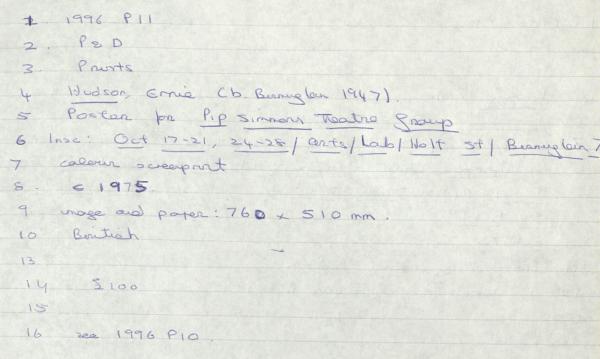 1 1996 P11
2. P & D
3. Prints
4 Hudson, Ernie (b. Birmingham 1947).
5 Poster for Pip Simmons Theatre Group
6 Insc: Oct 17-21, 24-28/ arts/ Lab/ Holt st/ Birmingham 7
7 colour screenprint
8. c 1975
9 image and paper: 760 x 510 mm.
10 British
13
14 £100
15
16 see 1996 P10.